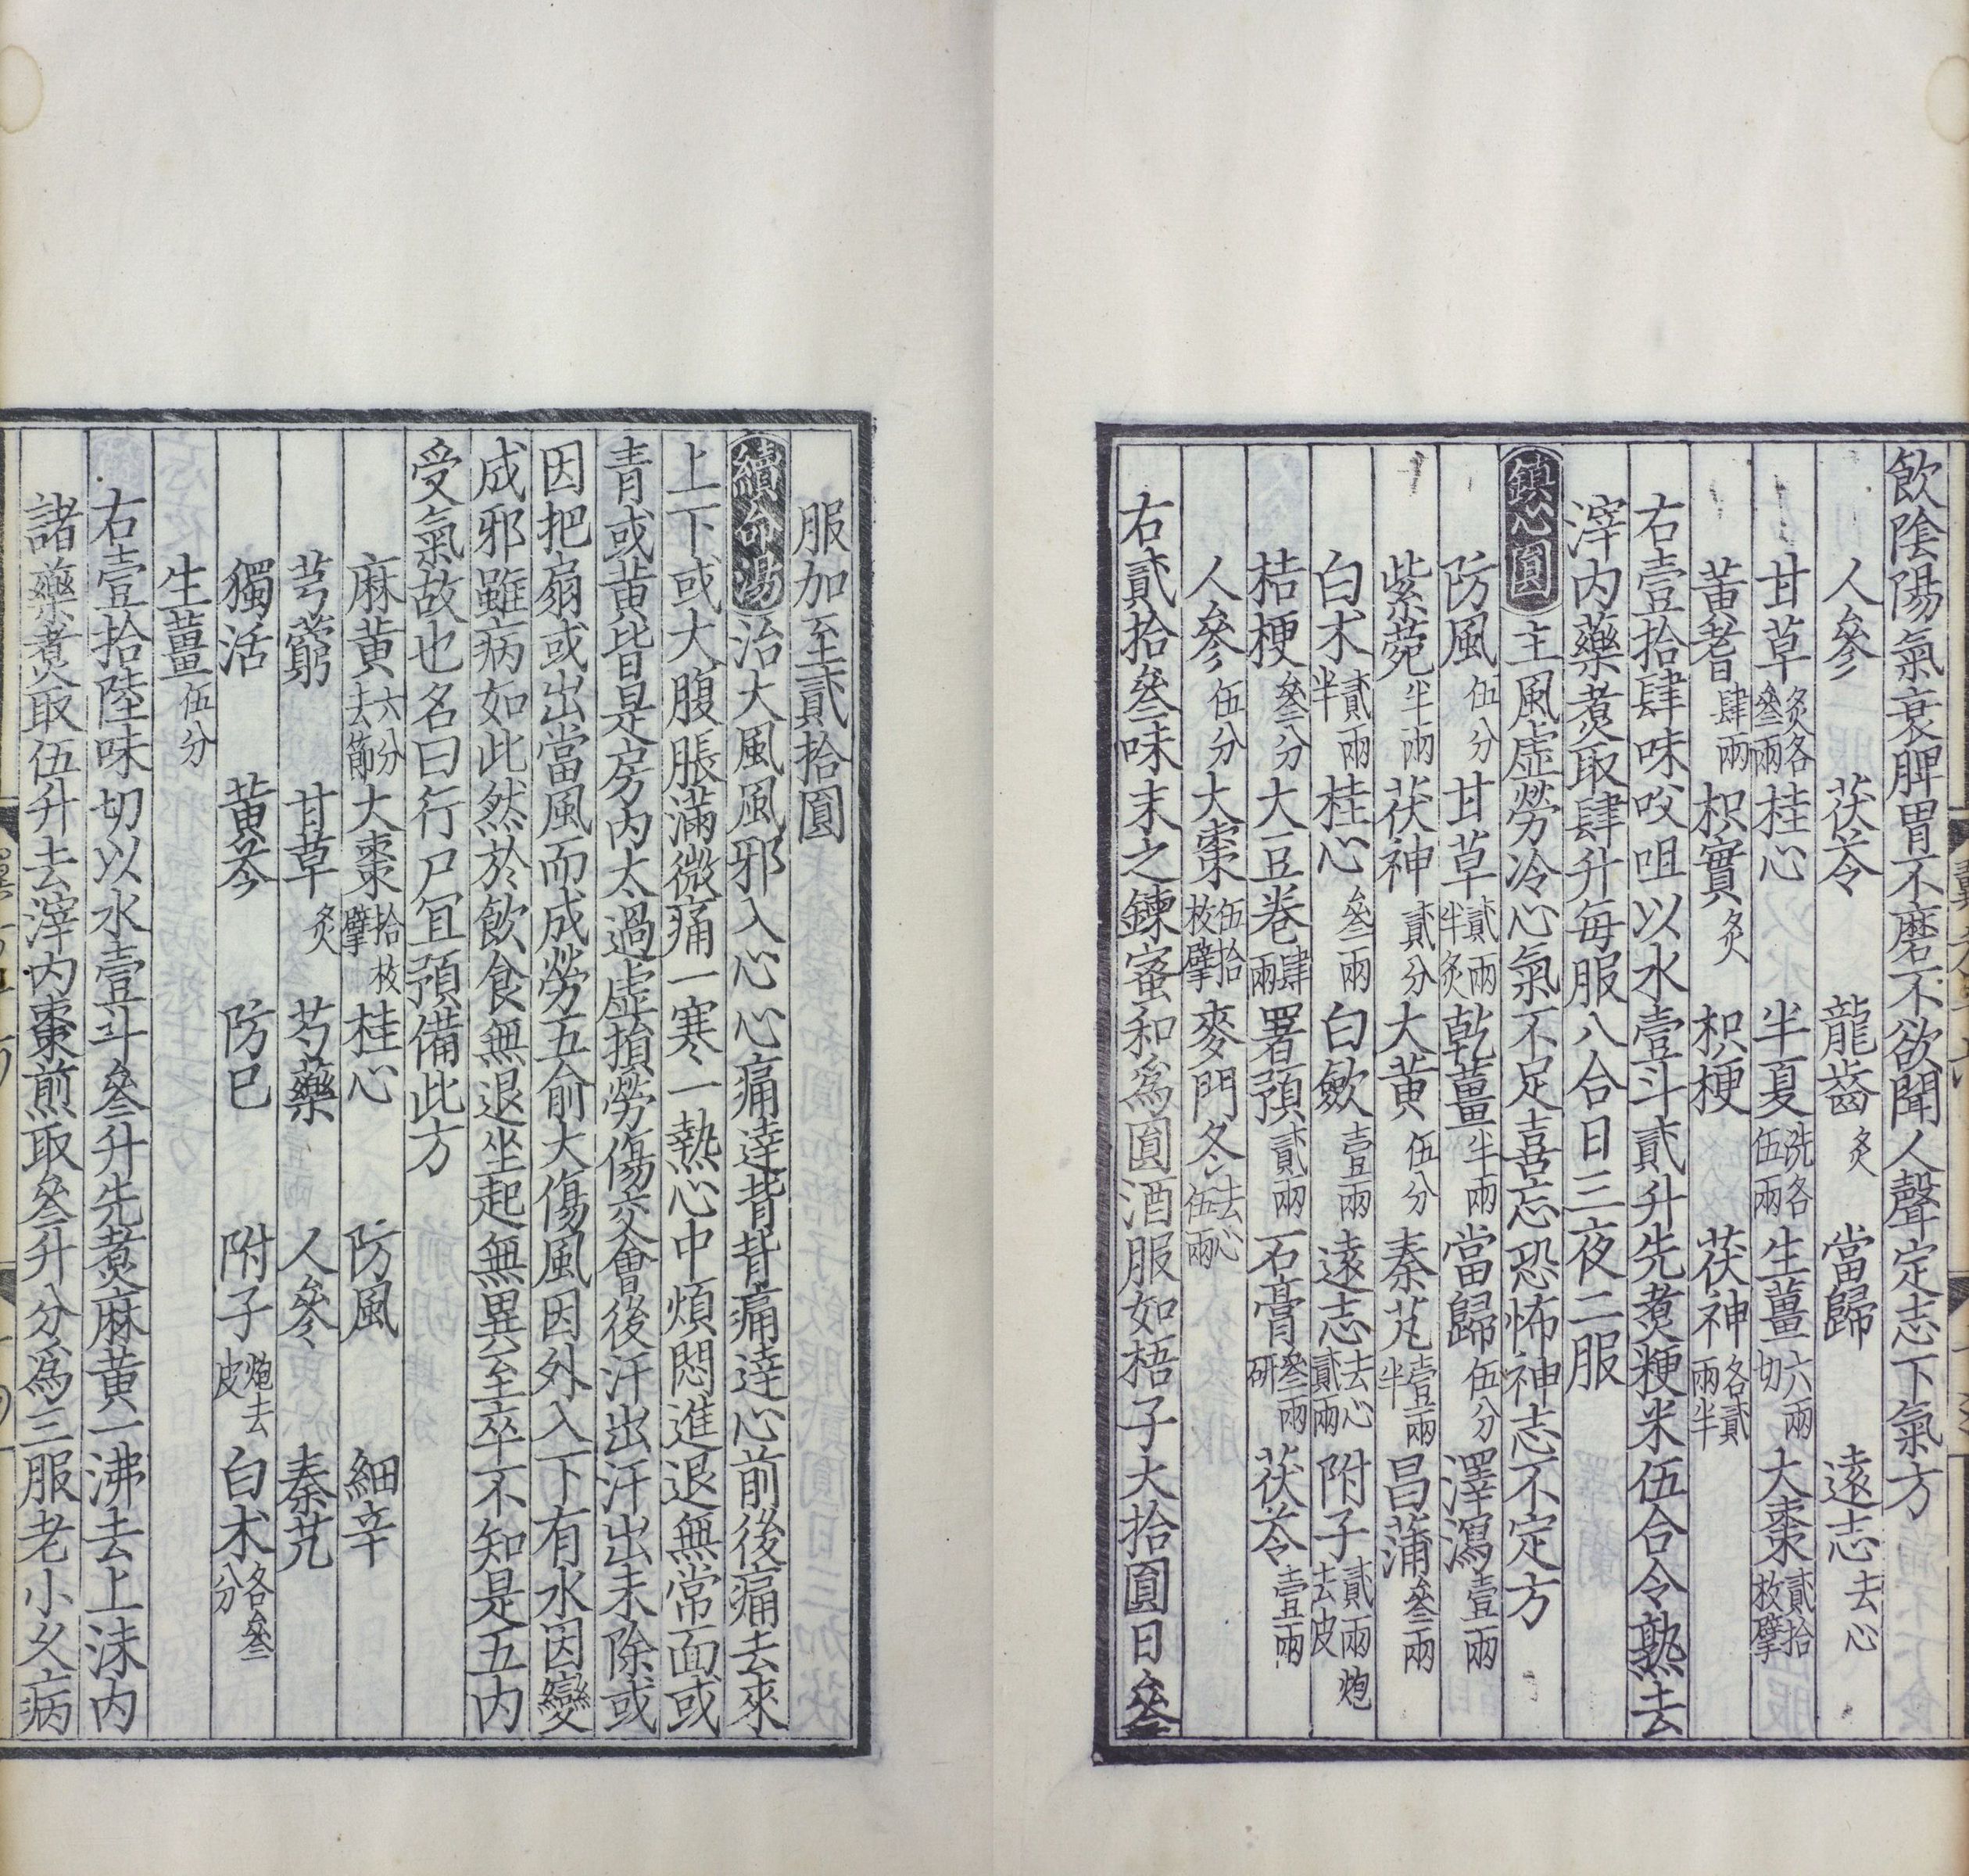 飲陰陽氣衰脾胃不磨不欲聞人聲定志下氣方
人參 茯苓 龍齒炙 當歸 遠志去心
甘草炙各叄兩 桂心 半夏洗各伍兩 生薑六兩切 大棗貳拾枚擘
黃耆肆兩 枳實炙 枳梗 茯神各貳兩半
右壹拾肆味㕮咀以水壹斗貳升先煑粳米伍合令熟去
滓内藥煑取肆升每服八合日三夜二服
鎮心圓主風虛勞冷心氣不足喜忘恐怖神志不定方
防風伍分 甘草貳兩半炙 乾薑半兩 當歸伍分 澤瀉壹兩
紫菀半兩 茯神貳分 大黃伍分 秦芃壹兩半 昌蒲叄兩
白朮貳兩半 桂心叄兩 白歛壹兩 遠志去心貳兩 附子貳兩炮去皮
桔梗叄分 大豆卷肆兩 署預貳兩 石膏叄兩研 茯苓壹兩
人參伍分 大棗伍拾枚擘 麥門冬去心伍兩
右貳拾叄味末之鍊蜜和為圓酒服如梧子大拾圓日叄
服加至貳拾圓
續命湯治大風風邪入心心痛達背背痛達心前後痛去來
上下或大腹脹滿微痛一寒一熱心中煩悶進退無常面或
青或黃皆是房内太過虛損勞傷交會後汗出汗出未除或
因把扇或出當風而成勞五俞大傷風因外入下有水因變
成邪雖病如此然於飲食無退坐起無異至卒不知是五内
受氣故也名曰行尸冝預備此方
麻黃六分去節 大棗拾枚擘 桂心 防風 細辛
芎藭 甘草炙 芍藥 人參 秦芃
獨活 黃芩 防巳 附子炮去皮 白朮各叄分
生薑伍分
右壹拾陸味切以水壹斗叄升先煑麻黃一沸去上沫内
諸藥煑取伍升去滓内棗煎取叄升分為三服老小久病